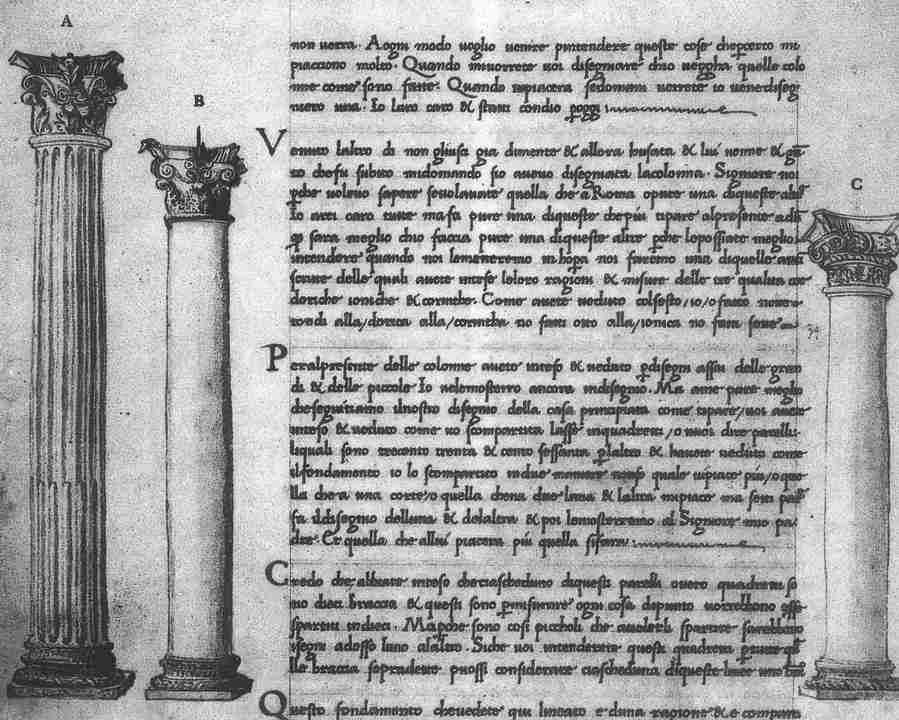 A
B
C
non verra. Aogni modo voglio venire pintendere queste cose cheperto mi
piacciono molto. Quando mivorrete voi disegniare chio veggha quelle colo
nne come sono fatte. Quando vipiacera sedomani verrete io vene diseg
nero una. Io laro caro & statti condio
Venuto laltro di non ghiusa gia dimente & allora husata & lui venne &
to chefu subito midomando sio avevo disegniata lacolonna. Signiore noi
pche volevo sapere sevolavate quella che a Roma opure una diqueste
Io arei caro tutte ma fa pure una diqueste chepiu tipare alpresente
sara meglio chio faccia pure una diqueste altre pche lopossiate meglio
intendere quando noi lemetteremo inhopa noi faremo una diquelle
scritte delle quali avete inteso leloro ragioni & misure delle tre qualita
doriche ioniche & corinthe. Come avete veduto
alla/dorica alla/corintha no fatti otto alla/ionica no fatti sette
Peralpresente delle colonne avete inteso & veduto pdisegni assai delle gran
di & delle piccole Io velemosterro ancora indisegno. Ma ame pare meglio
cheseguitiamo ilnostro disegnio della casa principiata come tipare/voi avete
inteso & veduto come vo scompartita lasse inquadretti/o vuoi dire paralli
liquali sono trecento trenta & cento sessanta plaltro & havete veduto come
ilfondamento io lo scompartito indue quale vipiace piu/oque
lla che a una corte/o quella chena due luna & laltra mipiace ma senti
fa ildisegno delluna & delaltra & poi lomosterremo al Signiore mio pa
dre. Et quella che allui piacera piu quella sifara
Credo che abbiate inteso checiascheduno diquesti parelli overo quadretti so
no dieci braccia & questi sono pmisurare ogni cosa dipunto vorrebbono esse
spartiti indieci. Mapche sono cosi picchioli che avolerli spartire sarebbono
isegni adosso luno alaltro. Siche voi intenderete questi quadretti
lle braccia sopradette puossi considerare ciascheduna diqueste
Questo fondamento chevedete qui lineato e duna ragione & e comparti